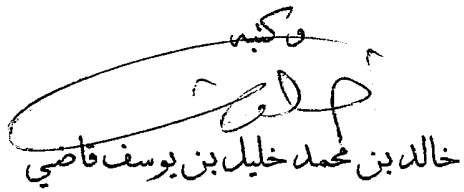 وكتبه
خالد بن محمد خليل بن يوسف قاضي